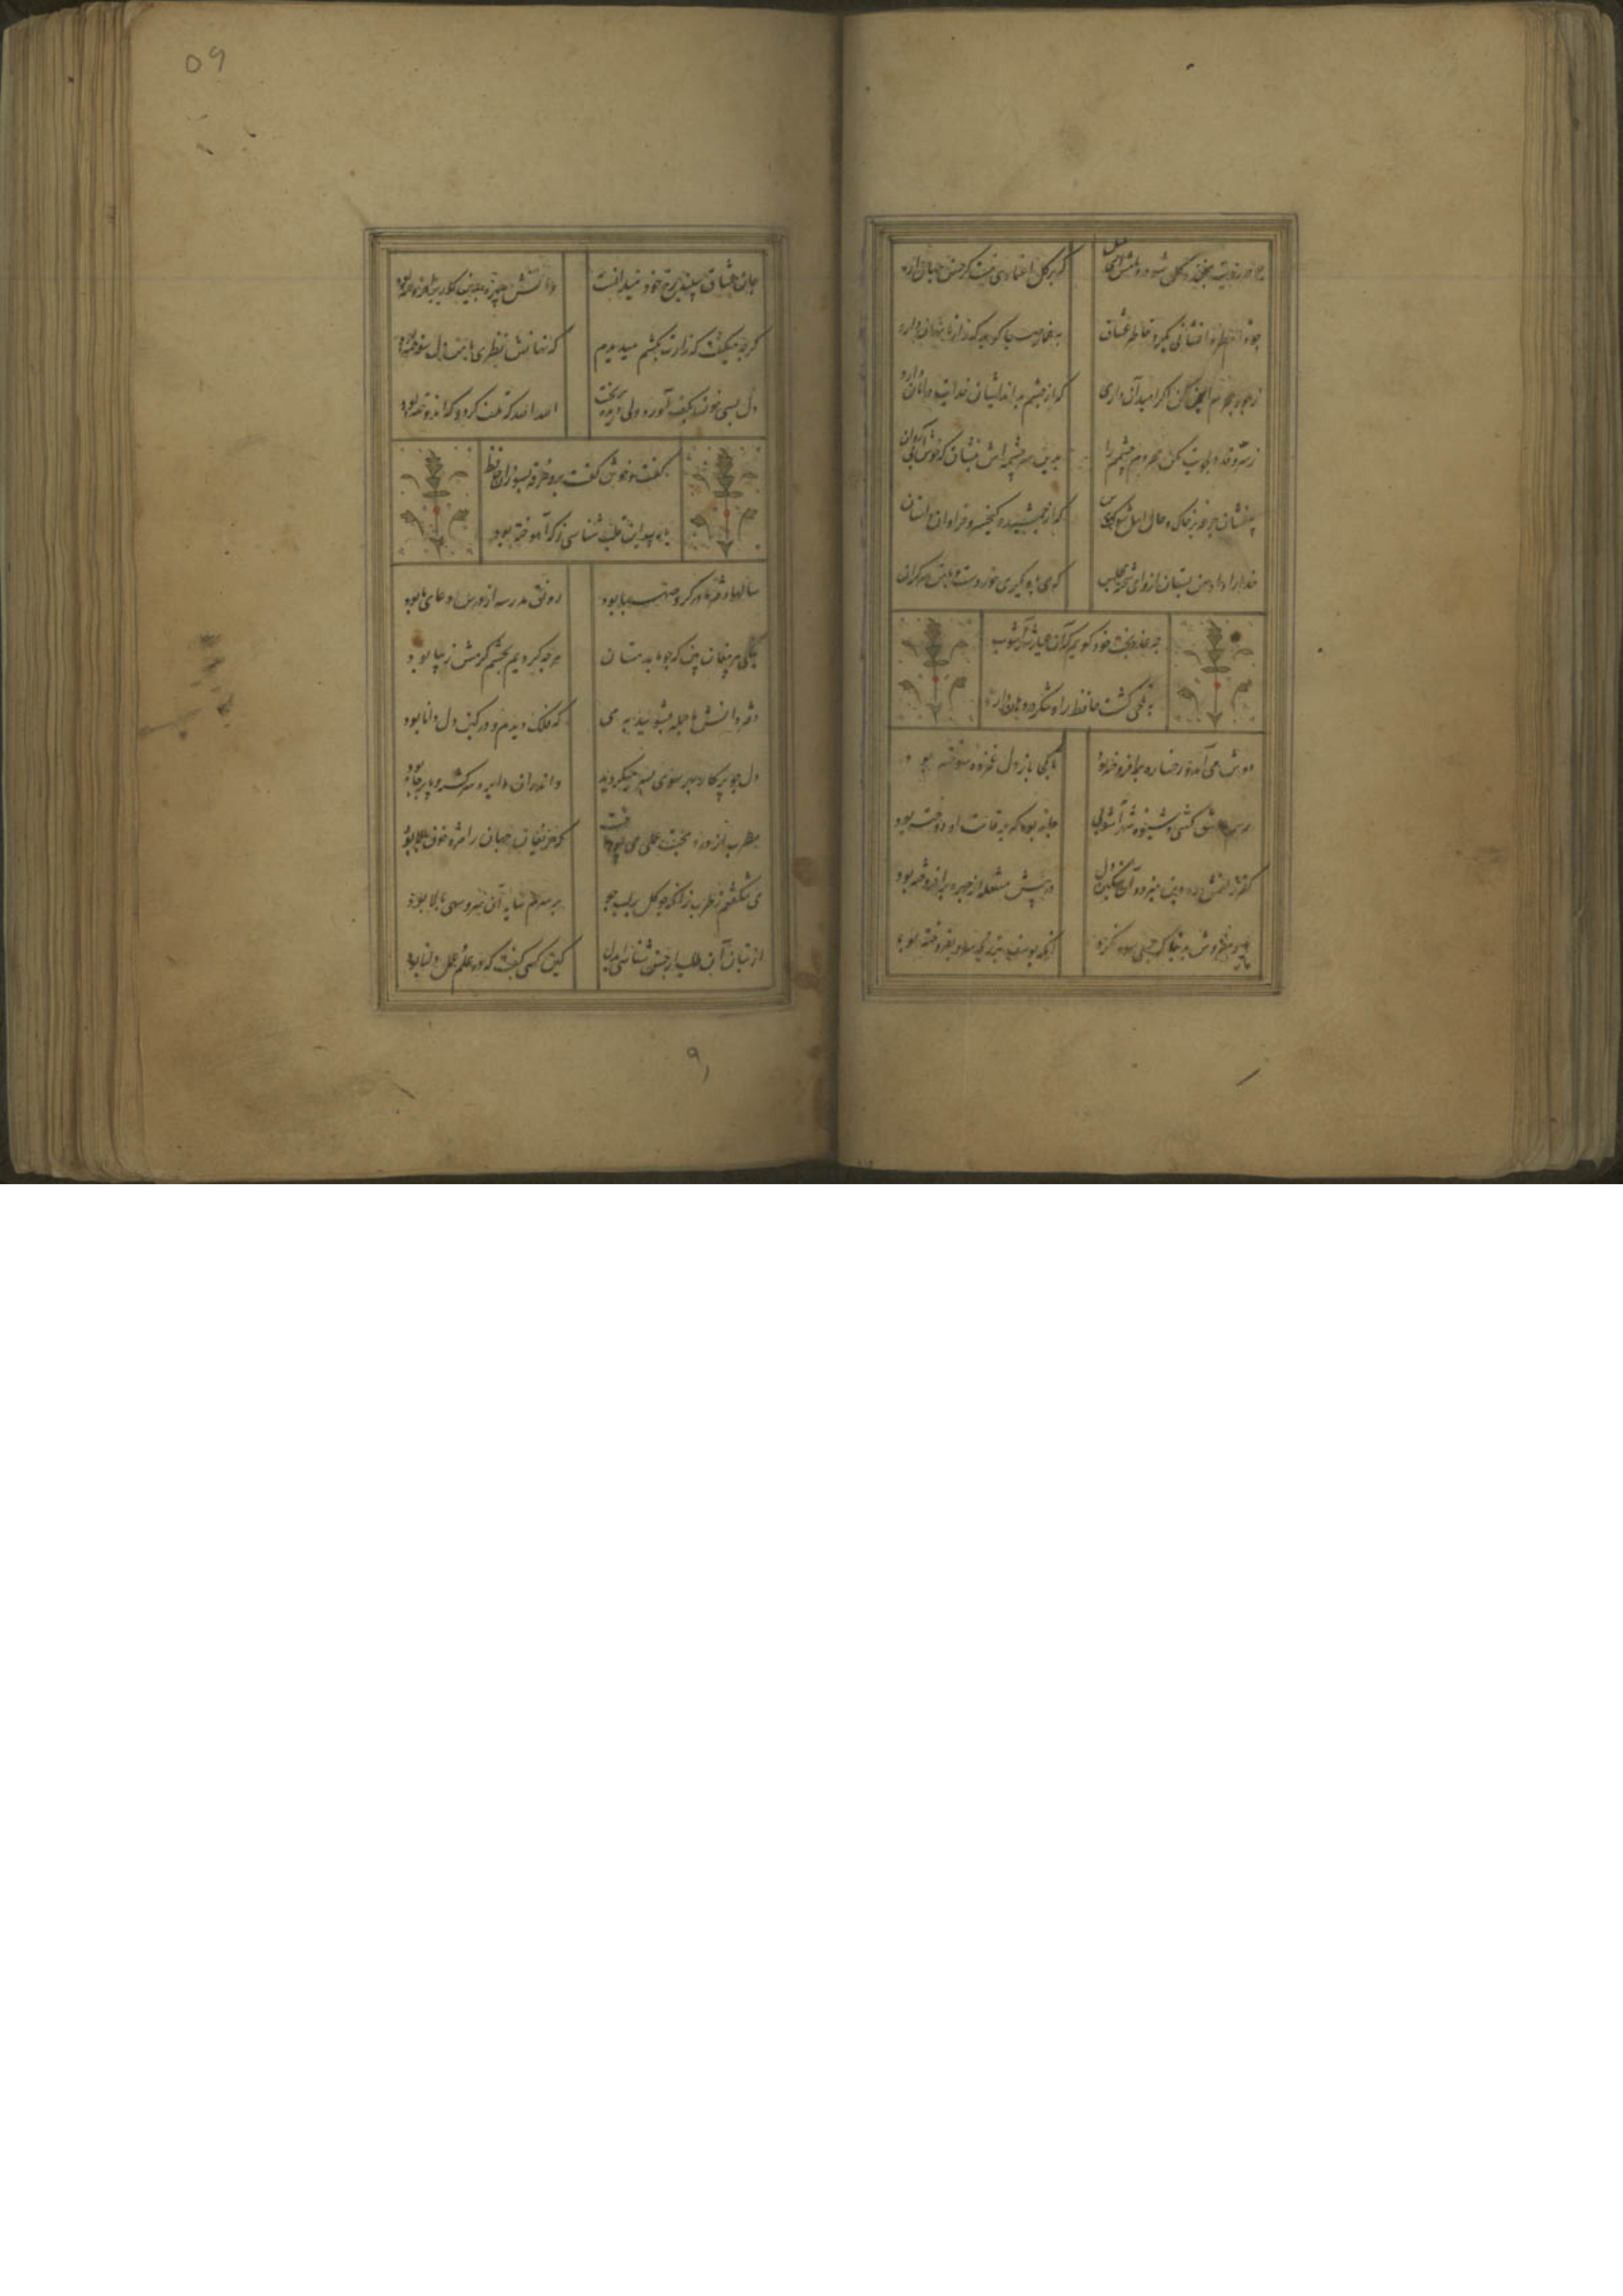 چو در رویت بخندد گل مشو در دامش ای بلبل
که بر گل اعتمادی نیست گر حسن جهان دارد
چو دام طره افشاند ز گرد خاطر عشاق
به غماز صبا گوید که راز ما نهان دارد
ز خوف هجرم ایمن کن اگر امید آن داری
که از چشم بداندیشان خدایت در امان دارد
ز سرو قد دلجویت مکن محروم چشمم را
بدین سرچشمه اش بنشان که خوش آبی روان دارد
بیفشان جرعه بر خاک و حال اهل شوکت پرس
که از جمشید و کیخسرو فراوان داستان
خدا را داد من بستان ازو ای شحنه مجلس
که می با دیگری خوردست و با من سر گران
چه عذر بخت خود گویم که آن عیار شهرآشوب
به تلخی کشت حافظ را و شکر در دهان دارد
دوش می آمد و رخساره برافروخته بود
تا کجا باز دل غمزده سوخته بود
رسم عاشق کشی و شیوه شهرآشوبی
جامه بود که بر قامت او دوخته بود
کفر زلفش ره دین میزد و آن سنگین دل
در پیش مشعله از چهره برافروخته بود
یار مفروش بدنیا که بسی سود نکرد
آنکه یوسف بزر ناسره بفروخته بود
جان عشاق سپند رخ خود میدانست
واتش چهره بدین کار برافروخته بود
گرچه میگفت که زارت بکشم میدیدم
که نهانش نظری با من دلسوخته بود
دل بسی خون بکف آورد ولی دیده بریخت
الله الله که تلف کرد و که اندوخته بود
گفت و خوش گفت برو خرقه بسوزان حافظ
یا رب این قلب شناسی ز که آموخته بود
سالها دفتر ما در گرو صهبا بود
رونق مدرسه از درس و دعای ما بود
نیکی پیر مغان بین که چو ما بدمستان
هرچه کردیم بچشم کرمش زیبا بود
دفتر دانش ما جمله بشویید به می
که فلک دیدم و در کین دل دانا بود
دل چو پرکار بهر سوی بسی میگردید
واندران دایره سرگشته پابرجا بود
مطرب از درد محبت عملی می پرداخت
که حریفان جهان را مژه خون پالا بود
می شکفتم ز طرب زانکه چو گل بر لب جو
بر سرم سایه آن سرو سهی بالا بود
از بتان آن طلب ار حسن شناسی ای دل
کین کسی گفت که در علم نظر بینا بود